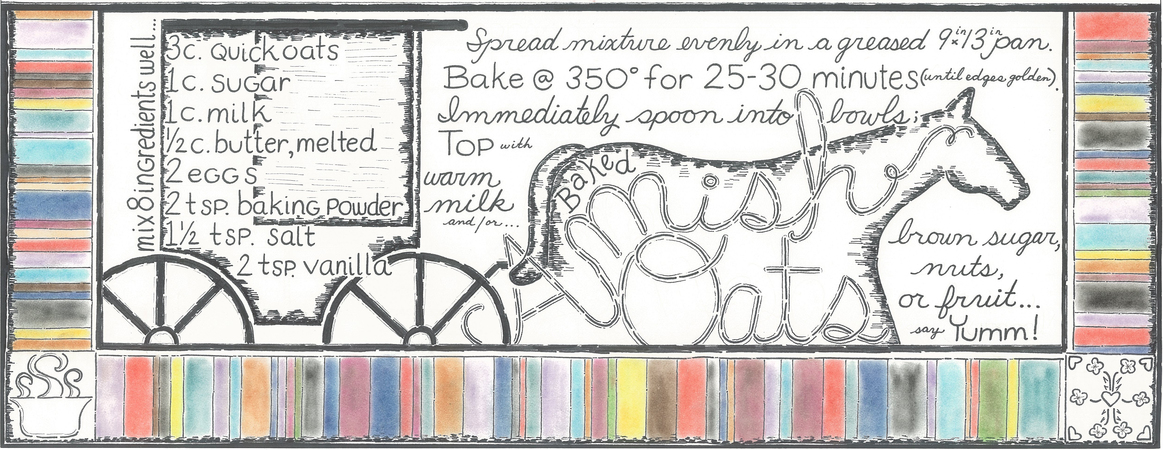 mix 8 ingredients well....
3c. Quick oats
1c. sugar
1c. milk
½ c. butter, melted
2 eggs
2 tsp. baking powder
1½ tsp. salt
2 tsp. vanilla
Spread mixture evenly in a greased 9in x 13in pan.
Bake @ 350° for 25-30 minutes (until edges golden).
Immediately spoon into bowls;
Top with
warm
milk
and/or...
brown sugar,
nuts,
or fruit...
say Yumm!
Baked
Amish
Oats